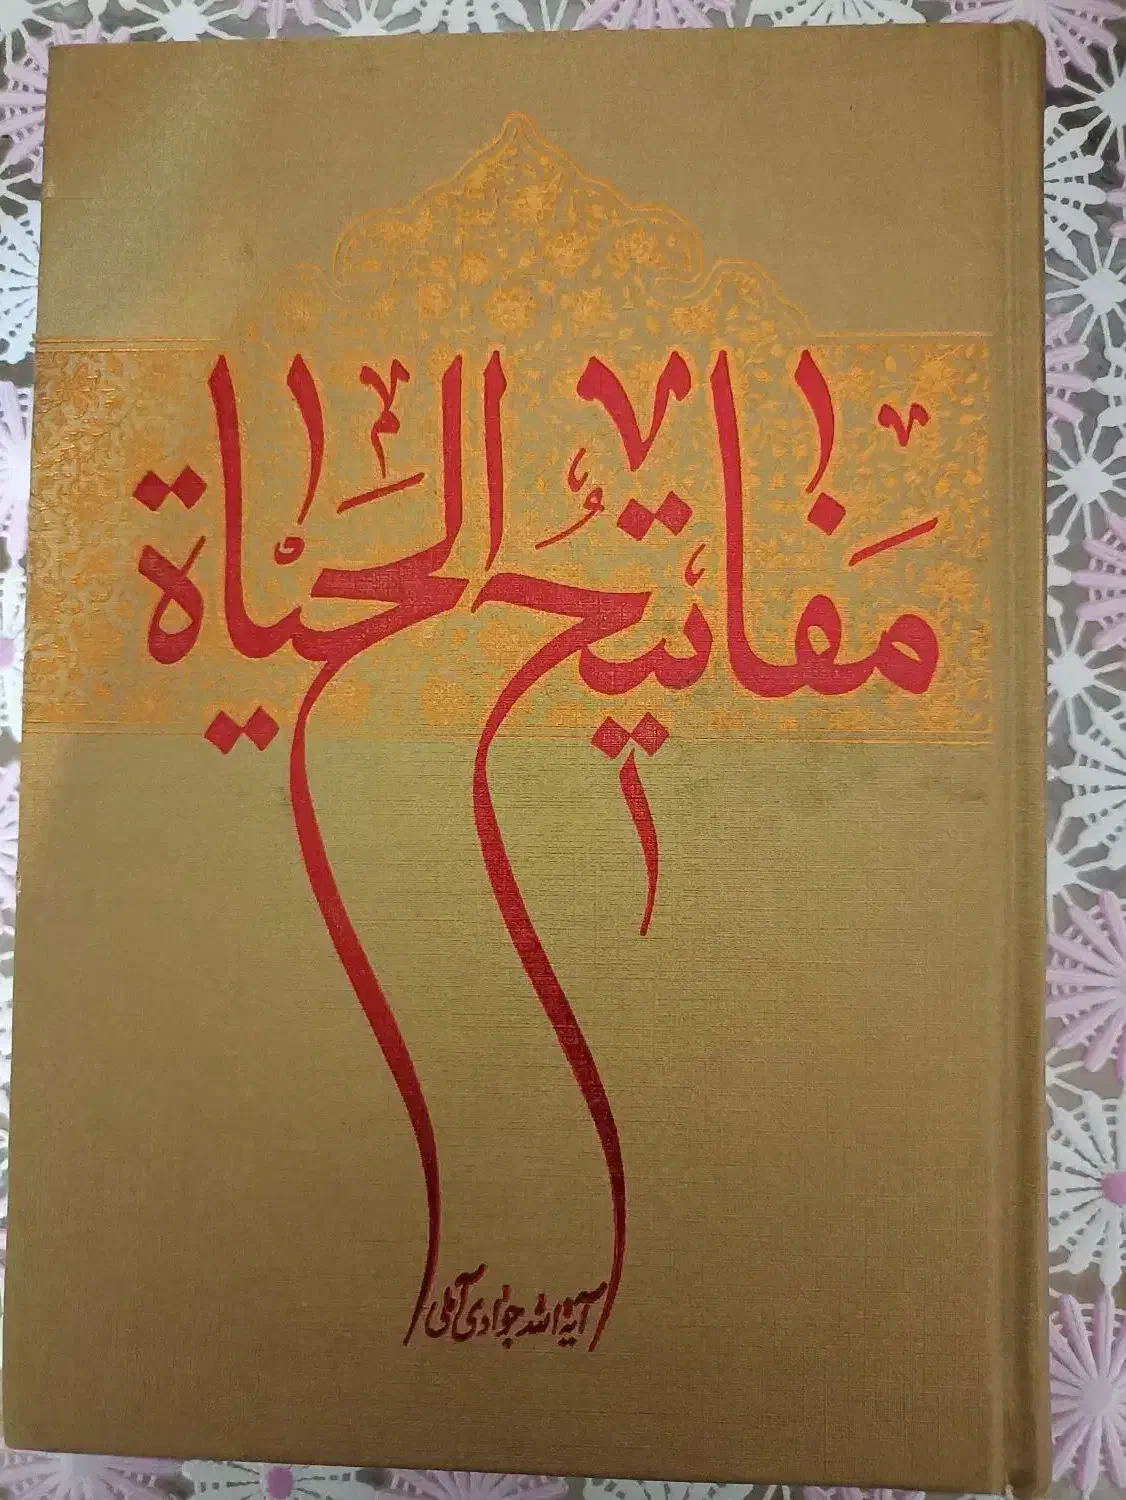 مَفاتیحُ الحَیاة
آیة‌الله جوادی آملی